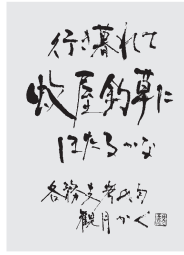 行き暮れて
蚊屋釣草に
ほたるかな
各務支考の句
観月かく